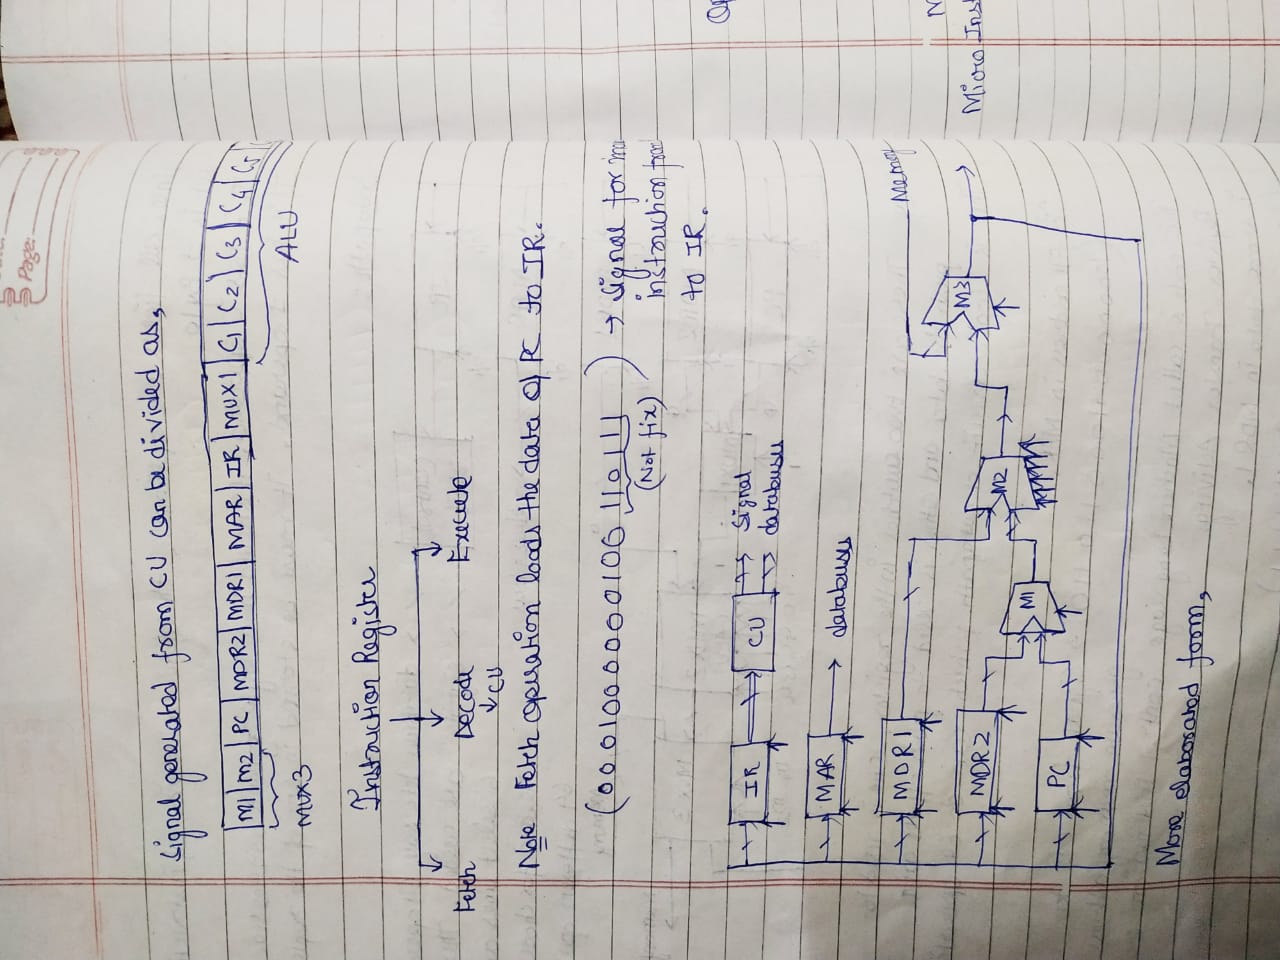 Page:
Signal generated from CU can be divided as,
M1 | M2 | PC | MDR2 | MDR1 | MAR | IR | MUX1 | C1 | C2 | C3 | C4 | C5
MUX3
ALU
Instruction Register
Fetch Decode Execute
CU
Note Fetch operation loads the data of PC to IR.
→ Signal for
(Not fix)
instruction
to IR.
IR
CU
Signal
databuses
MAR
databuses
MDR1
MDR2
PC
M1
M2
M3
Memory
More elaborated form,
Op
Micro Inst